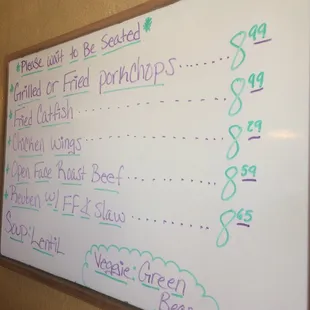 *Please wait to Be Seated*
*Grilled or Fried porkchops ...... 8 99
*Fried Catfish ............... 8 99
*Chicken wings .............. 8 29
*Open Face Roast Beef .......... 8 59
*Reuben w/ FF & Slaw .......... 8 65
Soup: Lentil
Veggie: Green
Bea